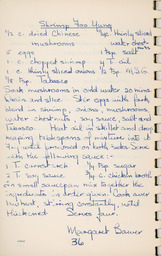 Shrimp Foo Yung
1/2 c. dried Chinese mushrooms
5 eggs
1 c. chopped shrimp
1 c. thinly sliced onions
1/8 tsp Tabasco
thinly sliced water chestnuts
1 tsp salt
T. oil
1/2 tsp M.S.G.
Soak mushrooms in cold water 30 mins
drain and slice. Stir eggs with fork,
blend in shrimp, onions, mushrooms,
water chestnuts, soy sauce, salt and
Tabasco. Heat oil in skillet and drop
heaping tablespoons of mixture into it.
Fry until browned on both sides. Serve
with the following sauce:-
1 T. cornstarch
2 T. soy sauce
1/2 tsp sugar
3/4 c. chicken broth
In small saucepan mix together the
ingredients in order given. Cook over
low heat, stirring constantly, until
thickened. Serves four.
Margaret Bauer
36